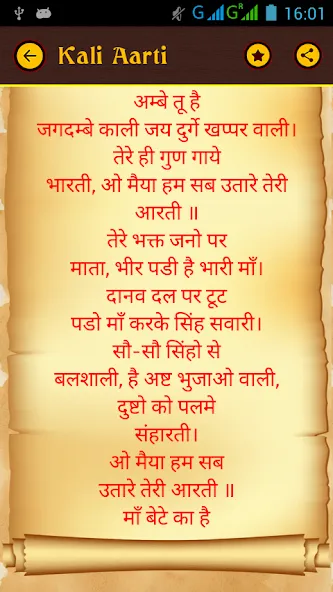 G G R 16:01
Kali Aarti
अम्बे तू है
जगदम्बे काली जय दुर्गे खप्पर वाली।
तेरे ही गुण गाये
भारती, ओ मैया हम सब उतारे तेरी
आरती ॥
तेरे भक्त जनो पर
माता, भीर पडी है भारी माँ।
दानव दल पर टूट
पडो माँ करके सिंह सवारी।
सौ-सौ सिंहो से
बलशाली, है अष्ट भुजाओ वाली,
दुष्टो को पलमे
संहारती।
ओ मैया हम सब
उतारे तेरी आरती ॥
माँ बेटे का है